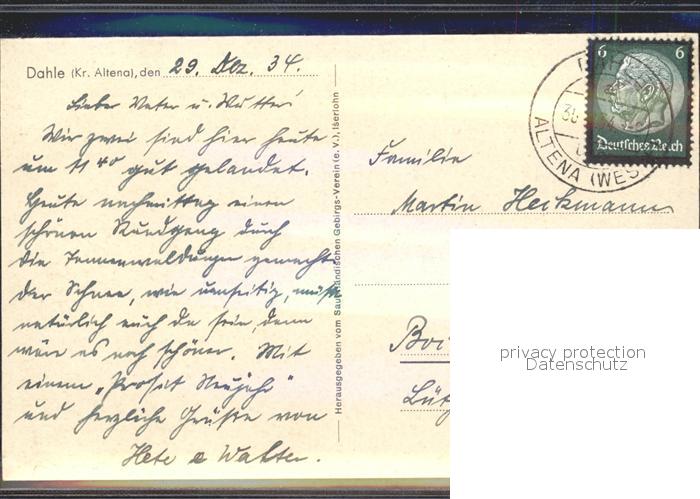 Dahle (Kr. Altena), den 29. Dez. 34.
Lieber Vater u. Mutter!
Wir zwei sind hier heute
um 11 40 gut gelandet.
Heute nachmittag einen
schönen Rundgang durch
die Tannenwaldungen gemacht.
Der Schnee, wie umseitig, müßte
natürlich auch da sein dann
wäre es noch schöner. Mit
einem „Prosit Neujahr"
und herzliche Grüße von
Hete u Walter.
Herausgegeben vom Sauerländischen Gebirgs-Verein (e. V.), Iserlohn
6 6
Deutsches Reich
ALTENA (WES
Familie
Martin Heikmann
privacy protection
Datenschutz